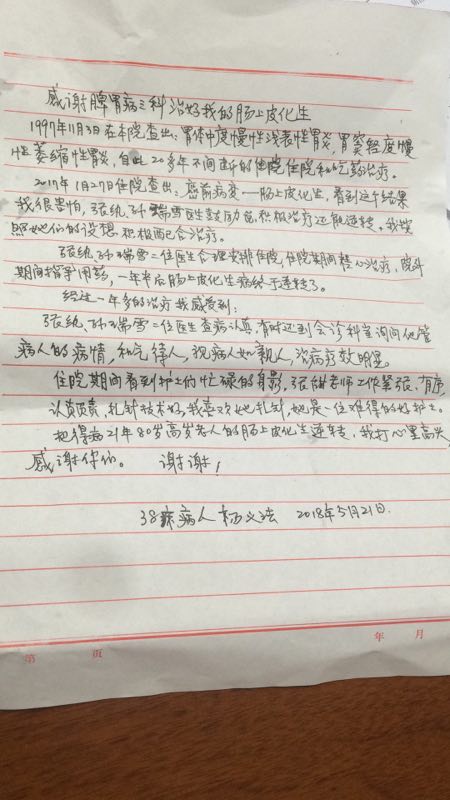 感谢脾胃病三科治好我的肠上皮化生
1997年11月3日在本院查出:胃体中度慢性浅表性胃炎,胃窦轻度慢
性萎缩性胃炎,自此20多年不间断的住院住院和吃药治疗。
2017年1月27日住院查出:癌前病变一肠上皮化生,看到这个结果
我很害怕,张纨、孙瑞雪医生鼓励 积极治疗还能逆转。我按
照她们的设想积极配合治疗。
张纨、孙瑞雪二位医生合理安排住院,住院期间精心治疗,院外
期间指导用药,一年半后肠上皮化生病终于逆转了。
经过一年多的治疗我感受到:
张纨、孙瑞雪二位医生查病认真,有时还到会诊科室询问他管
病人的病情,和气待人,视病人如亲人,治病疗效明显。
住院期间看到护士们忙碌的身影,张甜老师工作紧张、有序
认真负责,扎针技术好,我喜欢她扎针,她是一位难得的好护士。
把得病21年80岁高岁老人的肠上皮化生逆转,我打心里高兴,
感谢你们。 谢谢!
38床病人 杨义法 2018年5月21日.
第 页 年 月